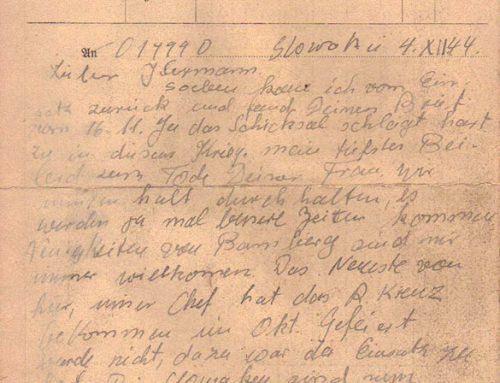 An 01799D Slowakei 4.XII44.
Lieber Hermann.
soeben kam ich vom Ein
satz zurück und fand Deinen Brief
vom 16.11. Ja das Schicksal schlägt hart
zu in diesem Krieg. mein tiefstes Bei-
leid zum Tode Deiner Frau, wir
müssen halt durch halten, es
werden ja mal bessere Zeiten kommen
Neuigkeiten von Bamberg sind mir
immer willkommen. Das Neueste von
hier, unser Chef hat das R Kreuz
bekommen im Okt. Gefeiert
wurde nicht, dazu war der Einsatz
Slowaken sind nun